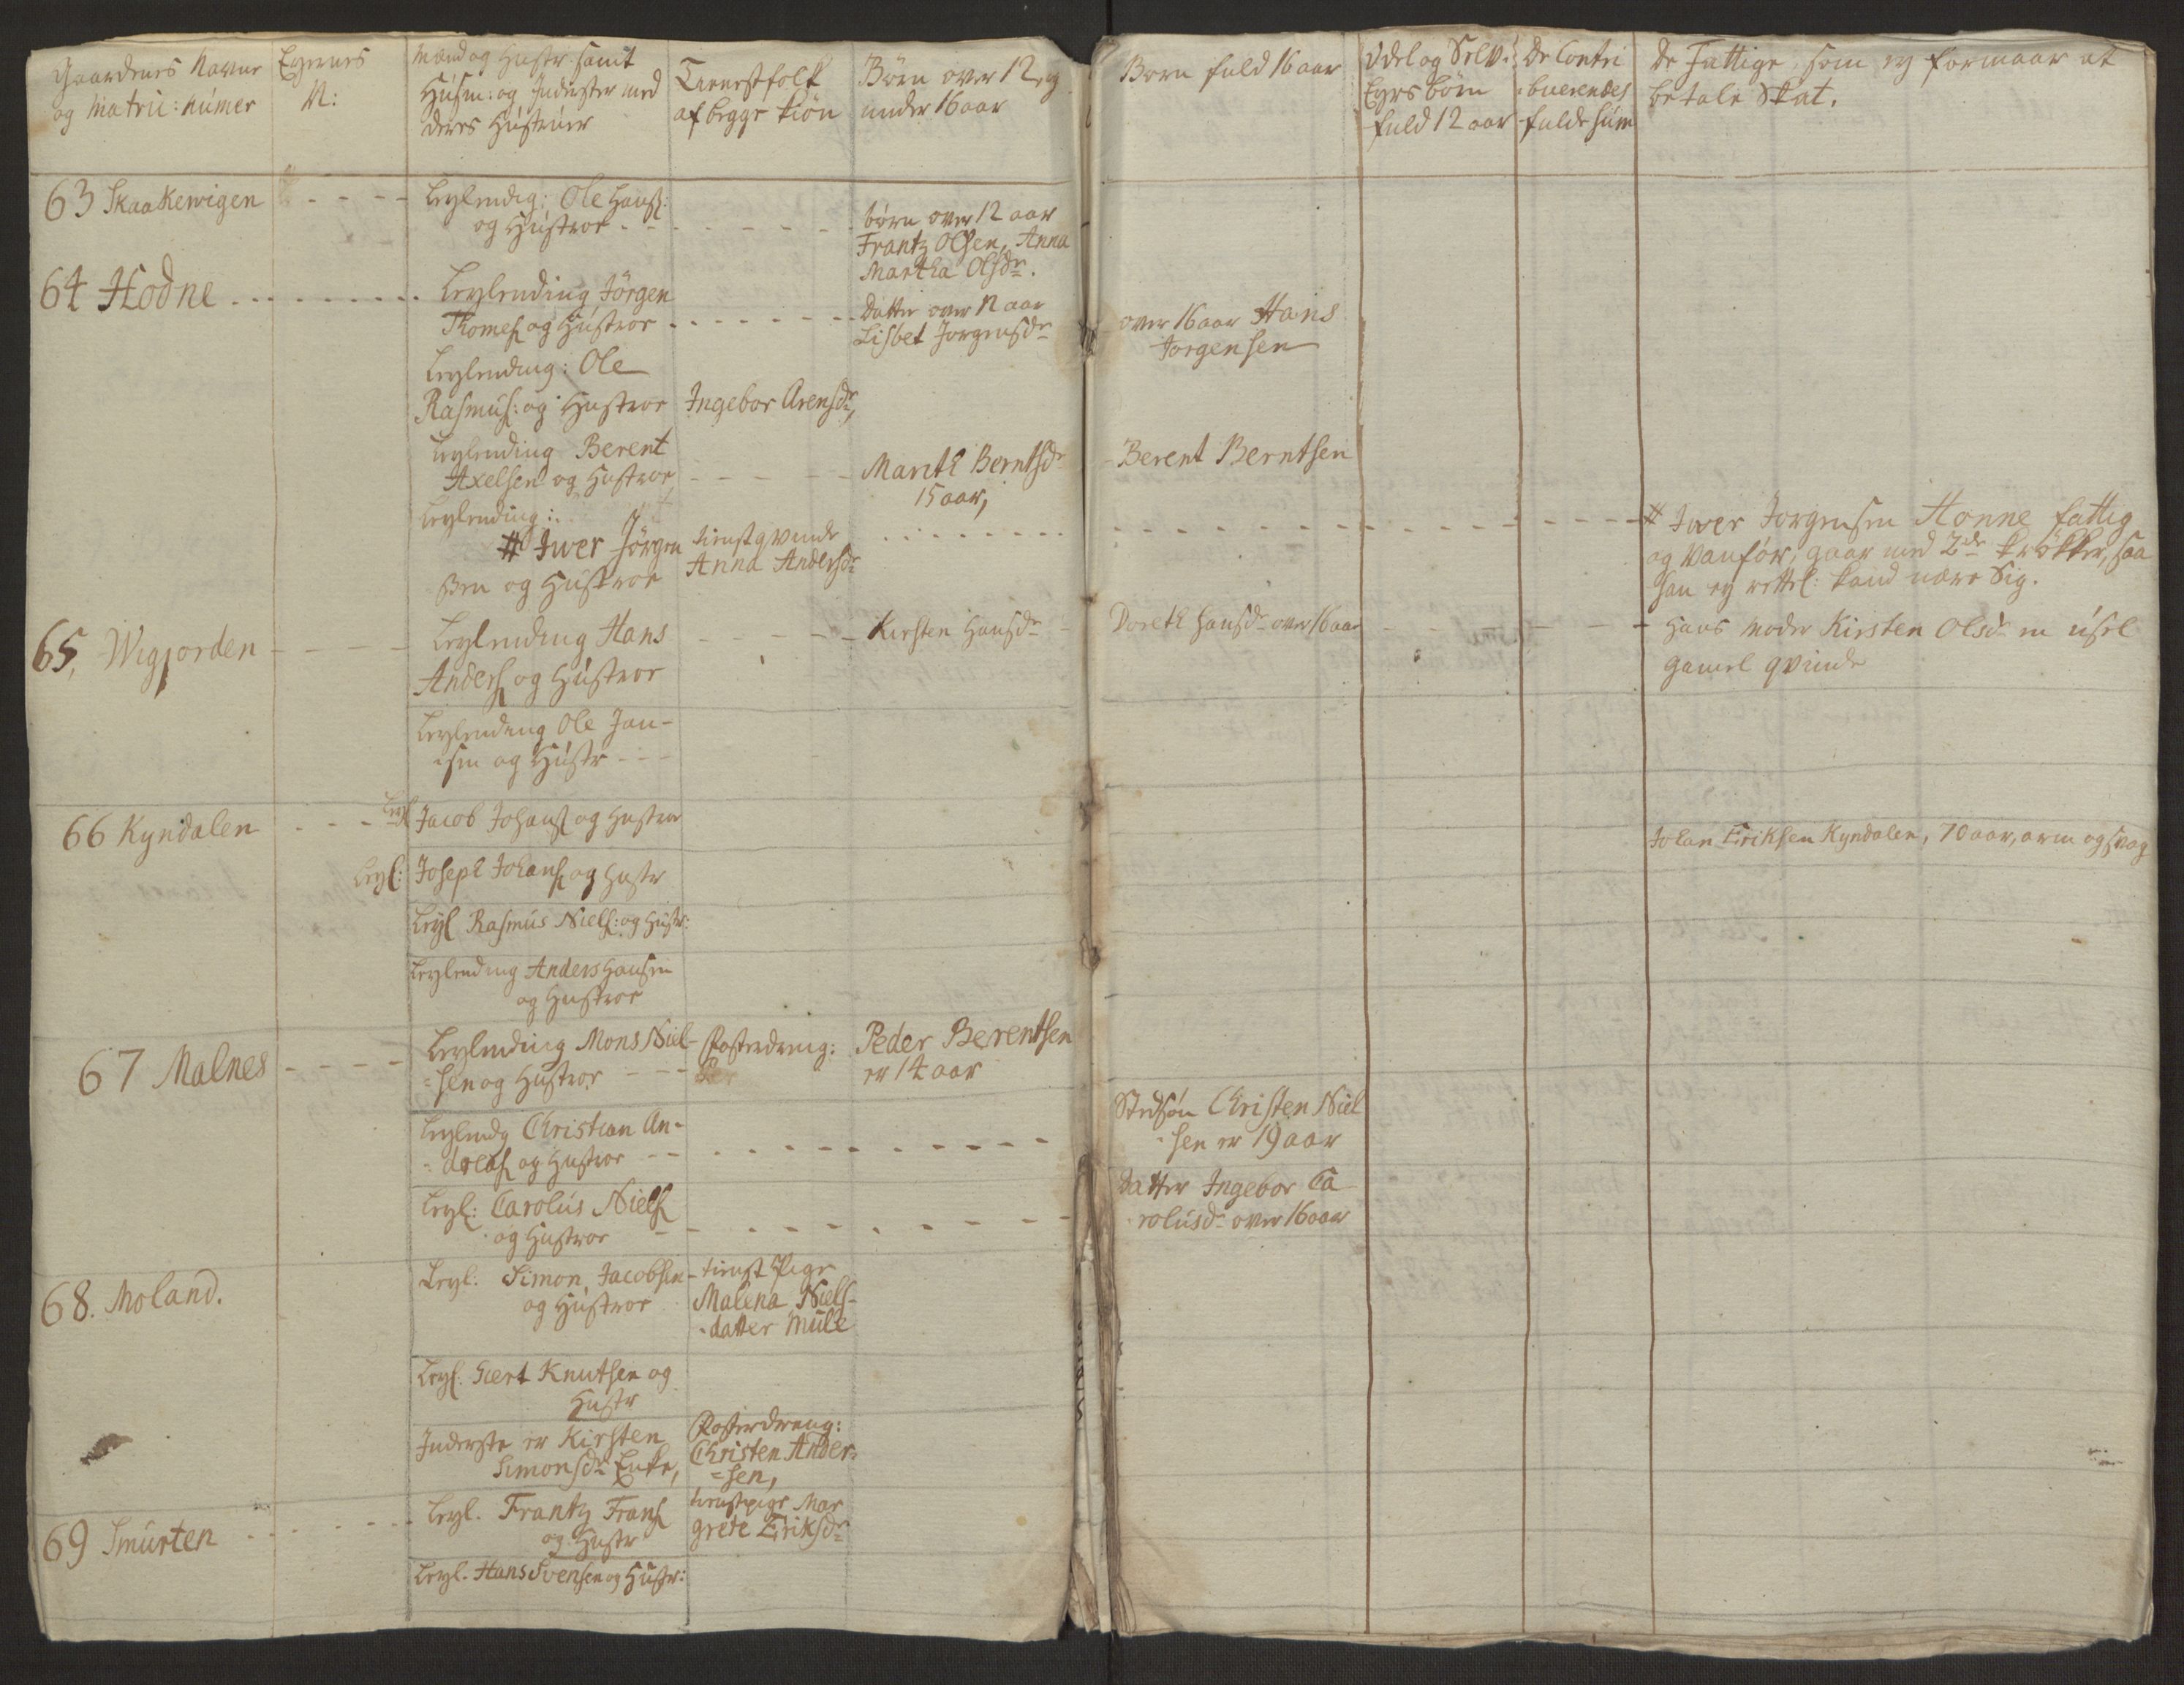 Gaardenes Navne
og Matric: Númer
Eyernes
N:
Mand og Hustr: samt
Húsm: og Inderster med
deres Hústruer
Tienestfolk
af begge kiön
Börn over 12 og
under 16 aar
Born fuld 16 aar
Odel og Selv:
Eyers börn
fuld 12 aar
De Contri
buerendes
fulde Súm
De Fattige, som ey formaar at
betale Skat.
63 Skaakewigen
Leylendig: Ole Hans:
og Hústroe
börn over 12 aar
Frantz Olsen, Anna
Martha Olsdr.
64 Hodne
Leylending Jörgen
Thomes og Hústroe
Datter over 12 aar
Lisbet Jorgensdr
over 16 aar Hans
Jorgensen
Leylending: Ole
Rasmus: og Hustroe
Ingebor Arensdr,
Leylending Berent
Axelsen og Hustroe
Marith Berntsdr
15 aar,
Berent Berntsen
Leylending:
# Iwer Jörgen
sen og Hústroe
tienestqvinde
Anna Andersdr
# Iwer Jorgensen Honne fattig
og vanför, gaar med 2de krökker, saa
han ey rettel: kand nære Sig.
65, Wigjorden
Leylending Hans
Anders og Hústroe
Kirsten Hansdr
Doreth Hansdr over 16 aar
Hans Moder Kirsten Olsdr en úsel
gamel qvinde
Leylending Ole Jan-
sen og Hústr
66 Kyndalen
Leyl Jacob Johans og Hustroe
Johan Eriksen Kyndalen, 70 aar, arm og svag
Leyl: Joseph Johans og Hustr
Leyl Rasmús Niels: og Hustr:
Leylending Anders Hansen
og Hustroe
67 Malnes
Leylending Mons Niel-
=sen og Hustroe
Fosterdreng:
Peder Berentsen
er 14 aar
Leylendg Christian An-
=dreas og Hustroe
Stedsön Christen Niel
sen er 19 aar
Leyl: Carolús Niels
og Hústroe
Datter Ingebor Ca
rolusdr over 16 aar
68. Moland.
Leyl. Simon Jacobsen
og Hústroe
tienst Pige
Malena Niels-
datter Mule
Leyl. Giert Knutsen og
Hustr
Inderste er Kirsten
Simonsdr Enke,
Fosterdreng:
Christen Ander=
=sen,
69 Smúrten
Leyl. Frantz Frans
og Hustr
tienstpige Mar
grete Eriksdr
Leyl. Hans Svensen og Hústr: